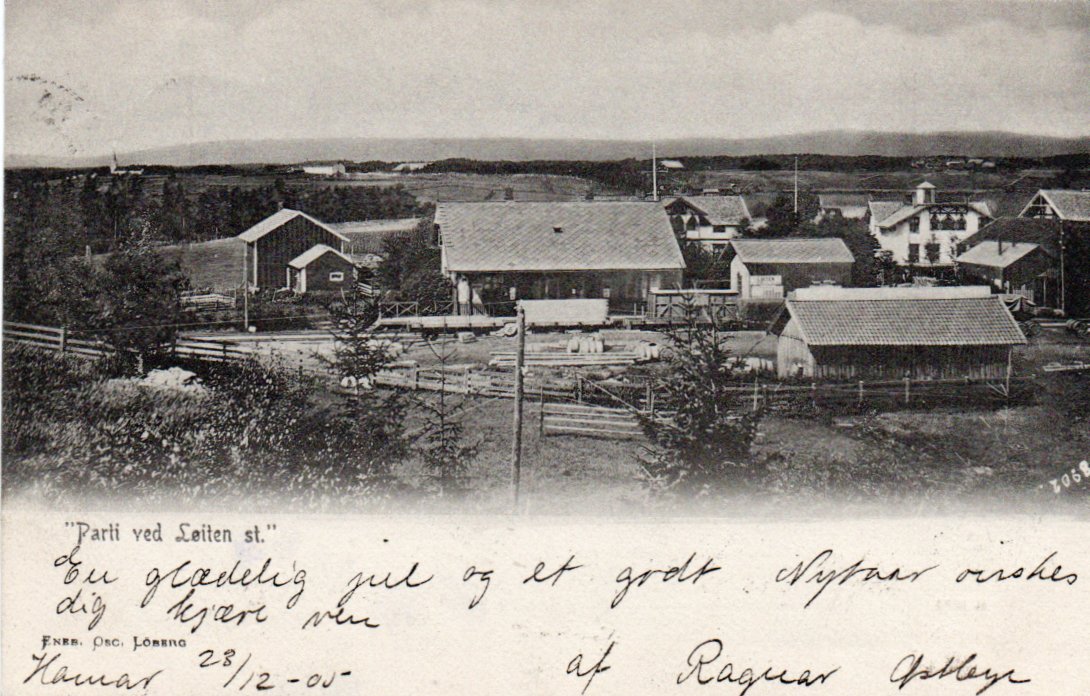 1902
"Parti ved Løiten st."
En glædelig jul og et godt Nytaar ønskes
dig kjære ven
Eneb. Osc. Löberg
Hamar 23/12-05
af Ragnar Østbye